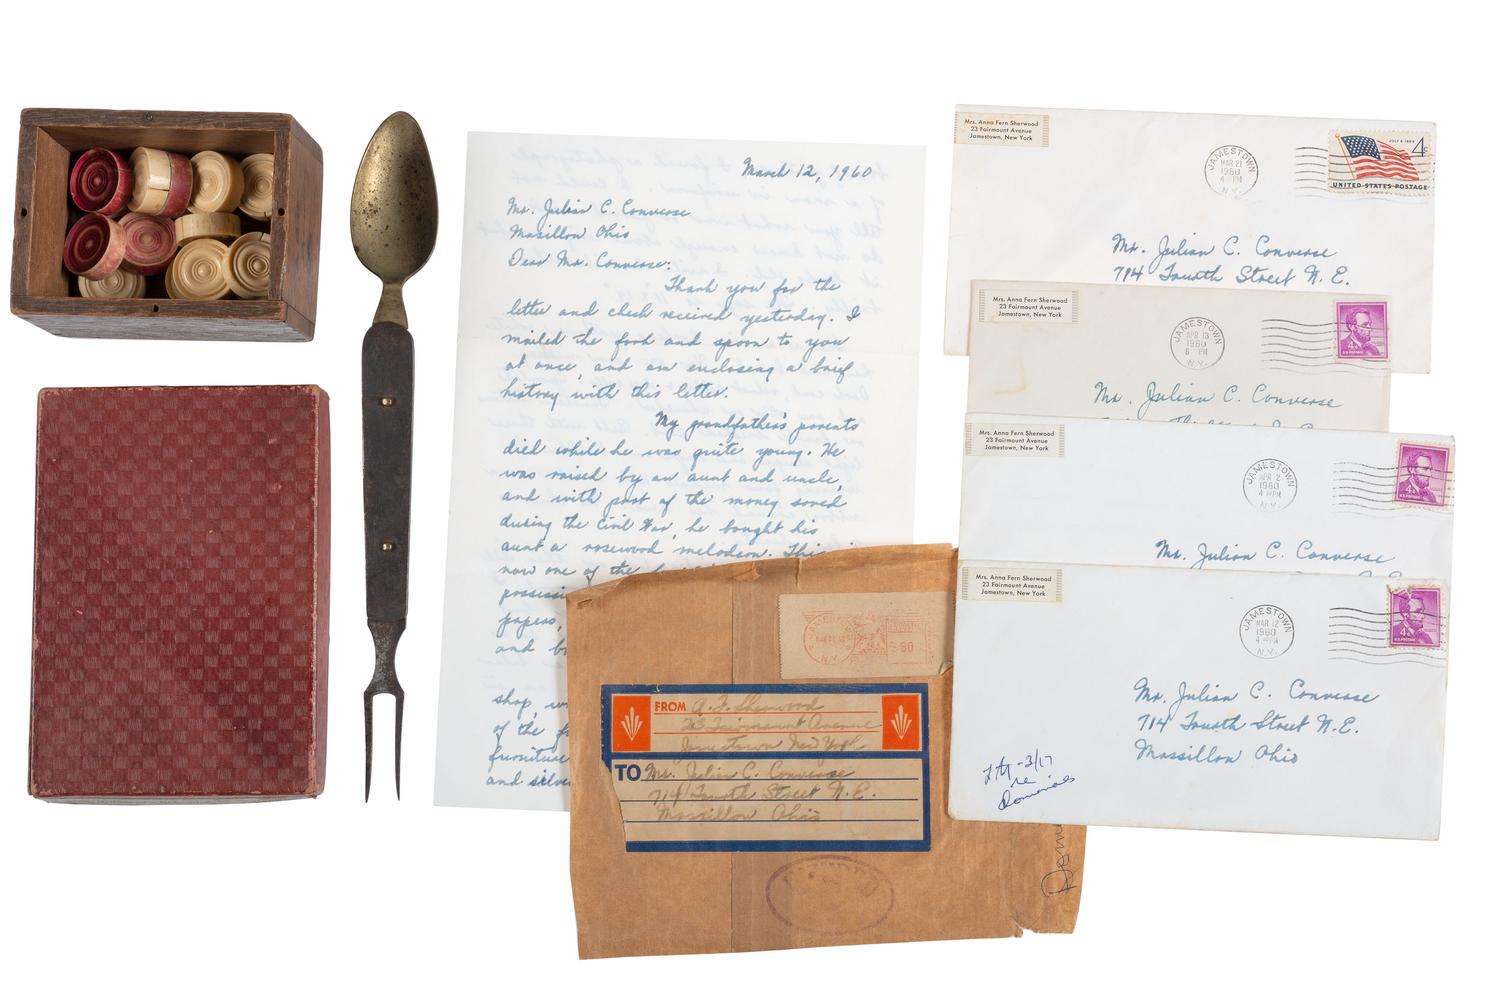 March 12, 1960
Mr. Julian C. Converse
Masillon Ohio
Dear Mr. Converse:
Thank you for the
letter and check received yesterday. I
mailed the fork and spoon to you
at once, and am enclosing a brief
history with this letter.
My grandfather's parents
died while he was quite young. He
was raised by an aunt and uncle,
and with part of the money saved
during the Civil War, he bought his
aunt a rosewood melodeon. This
now one of the
possessi
papers,
and b
shop, w
of the f
furniture
and silver
JAMESTOWN
N.Y.
80
FROM A. F. Sherwood
23 Fairmount Avenue
Jamestown New York
TO Mr. Julian C. Converse
714 Fourth Street N.E.
Massillon Ohio
Mrs. Anna Fern Sherwood
23 Fairmount Avenue
Jamestown, New York
JAMESTOWN
MAR 21
1960
4 PM
N.Y.
JULY 4, 1960
4¢
UNITED STATES POSTAGE
Mr. Julian C. Converse
714 Fourth Street N.E.
Mrs. Anna Fern Sherwood
23 Fairmount Avenue
Jamestown, New York
JAMESTOWN
APR 13
1960
6 PM
N.Y.
4¢
U.S. POSTAGE
Mr. Julian C. Converse
Mrs. Anna Fern Sherwood
23 Fairmount Avenue
Jamestown, New York
JAMESTOWN
APR 2
1960
4 PM
N.Y.
4¢
U.S. POSTAGE
Mr. Julian C. Converse
Mrs. Anna Fern Sherwood
23 Fairmount Avenue
Jamestown, New York
JAMESTOWN
MAR 12
1960
4 PM
N.Y.
4¢
U.S. POSTAGE
Mr. Julian C. Converse
714 Fourth Street N.E.
Massillon Ohio
-3/17
re
Dominoes
Dom